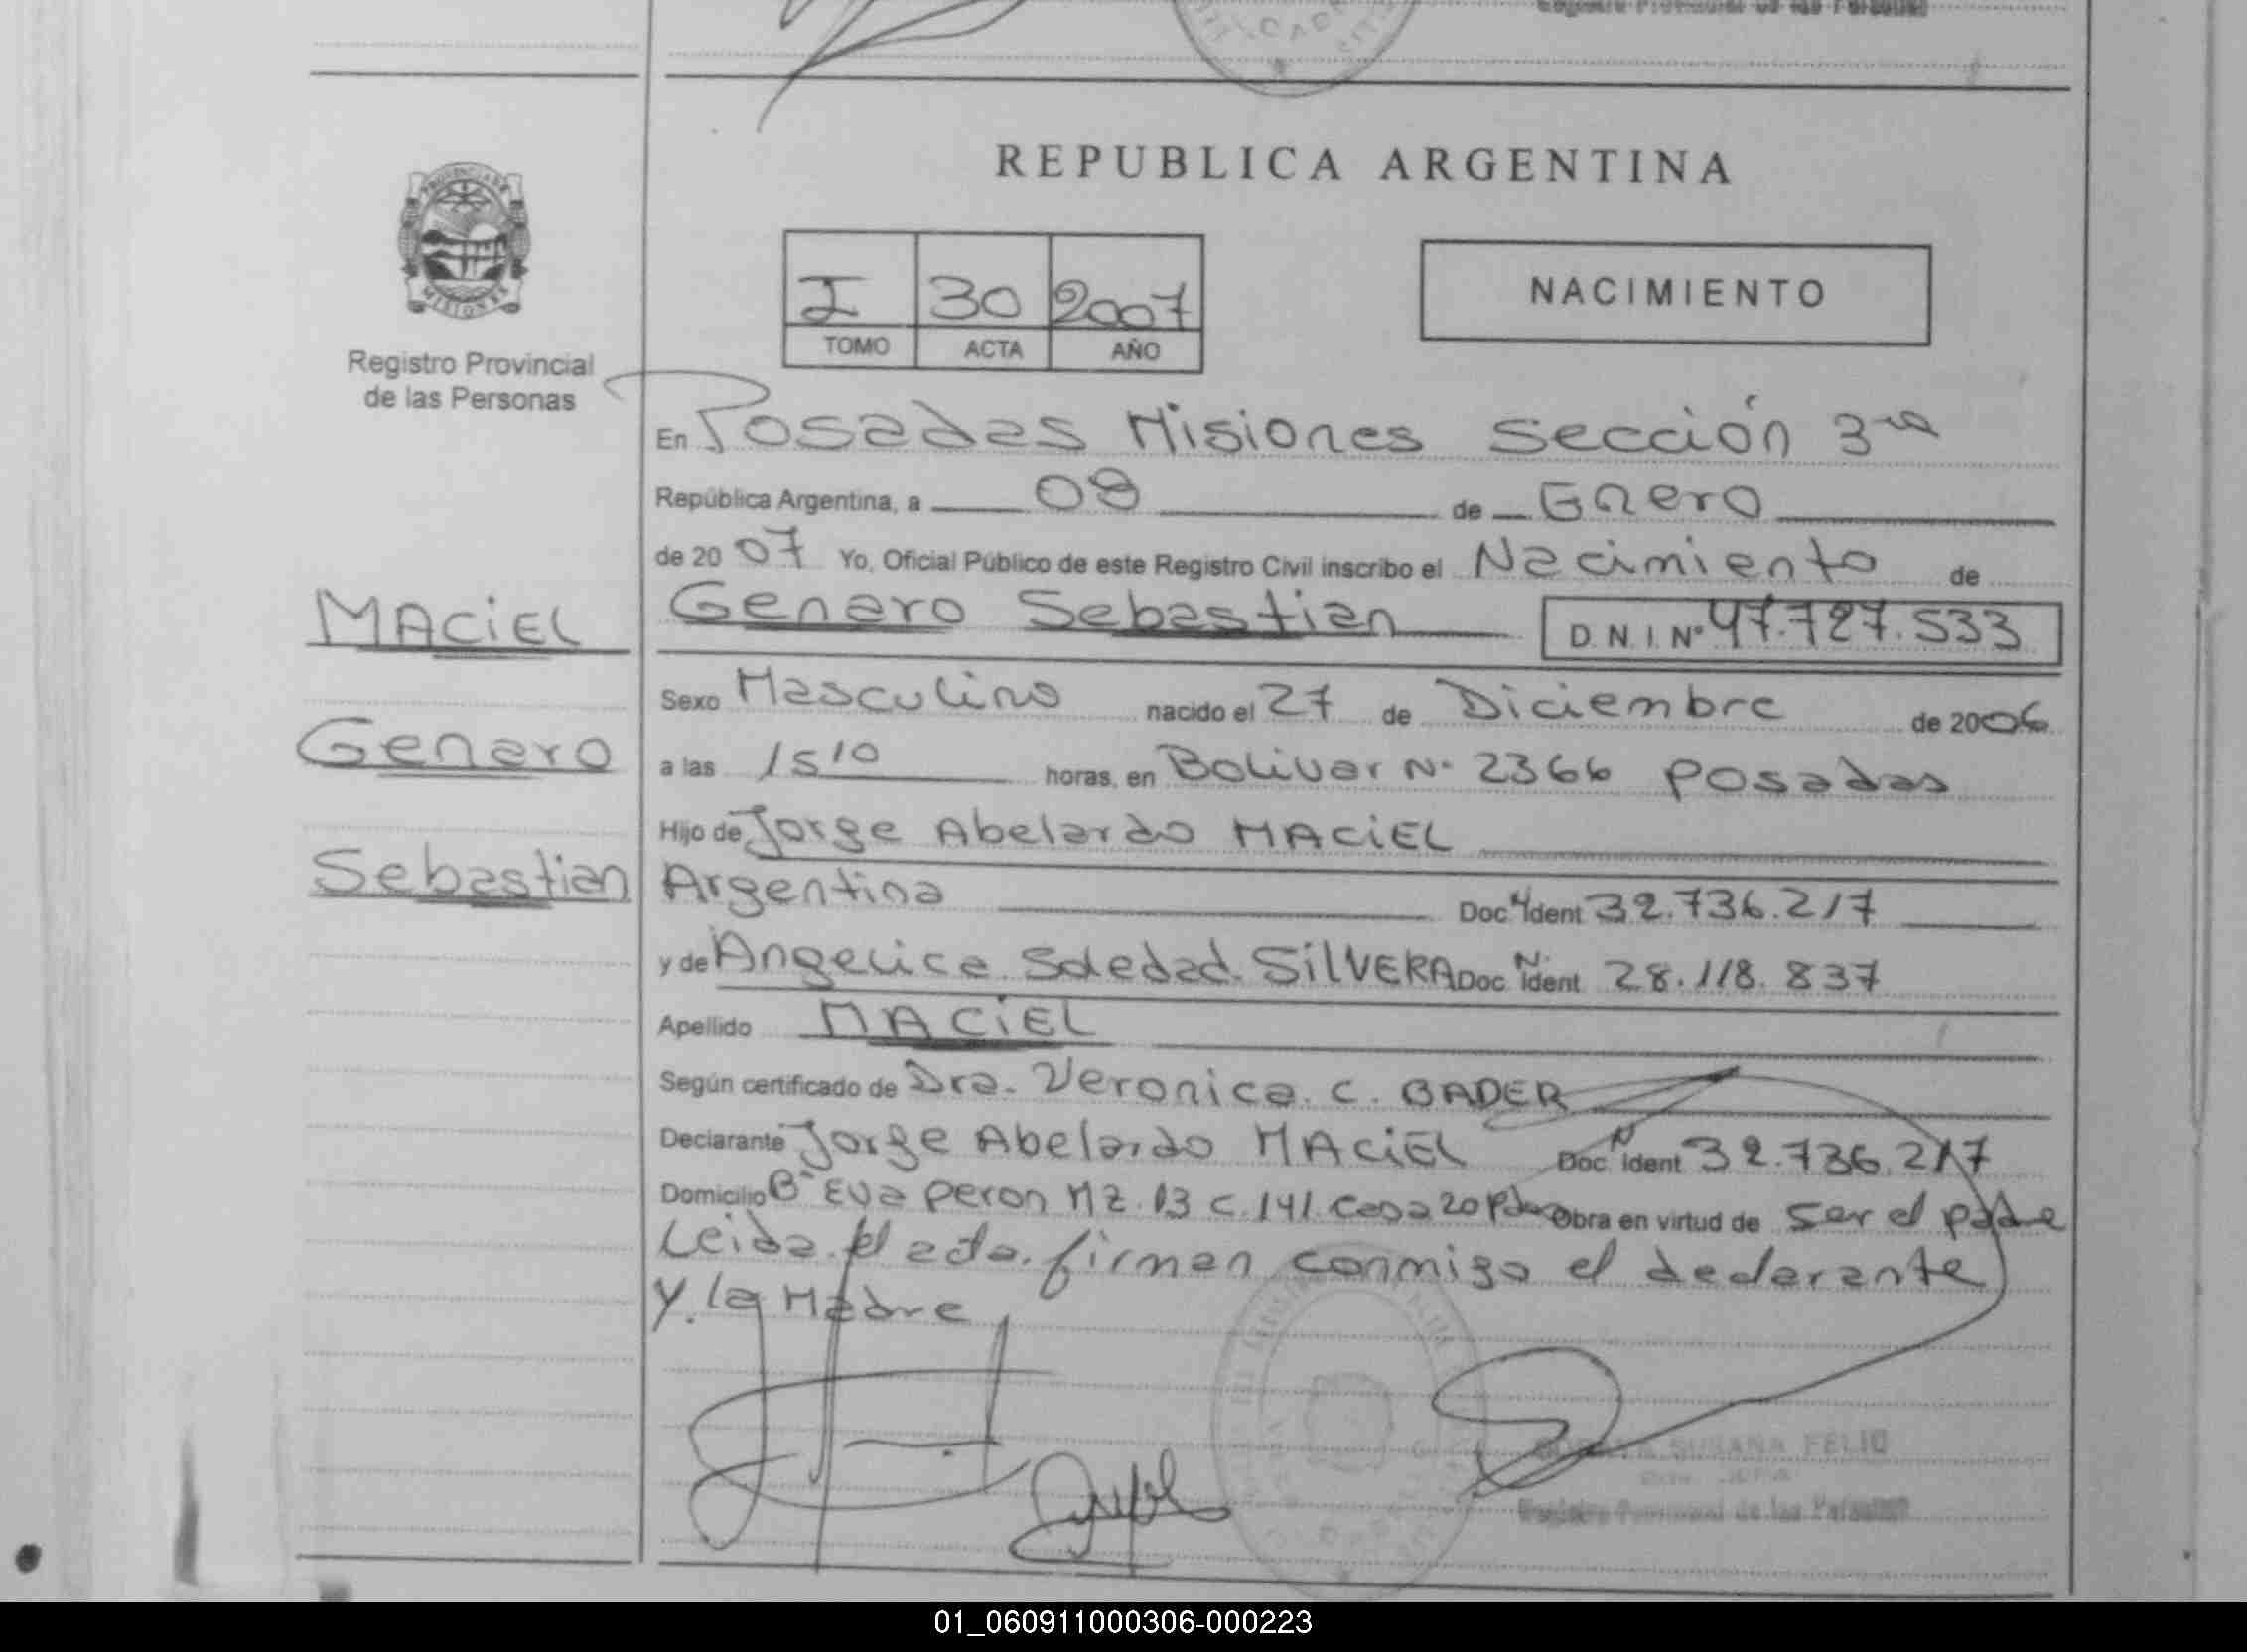 Registro Provincial de las Personas
REPUBLICA ARGENTINA
PROVINCIA DE
MISIONES
Registro Provincial
de las Personas
I 30 2007
TOMO ACTA AÑO
NACIMIENTO
En Posadas Misiones Sección 3ra
República Argentina, a 09 de Enero
de 2007 Yo, Oficial Público de este Registro Civil inscribo el Nacimiento de
MACiEL
Genaro Sebastian D.N.I. Nº 47.727.533
Sexo Masculino nacido el 27 de Diciembre de 2006
Genaro
a las 1510 horas, en Bolivar Nº 2366 Posadas
Hijo de Jorge Abelardo MACiEL
Sebastian
Argentina Doc N Ident 32.736.217
y de Angelica Soledad SiLVERA Doc N. Ident 28.118.837
Apellido MACiEL
Según certificado de Dra. Veronica C. BADER
Declarante Jorge Abelardo MACiEL Doc. N Ident 32.736.217
Domicilio Bº Eva Peron MZ. 13 C. 141 Casa 20 Pdas Obra en virtud de ser el padre
Leida el acta firman conmigo el declarante
y la Madre
SUSANA FELIU
Registro Provincial de las Personas
01_060911000306-000223